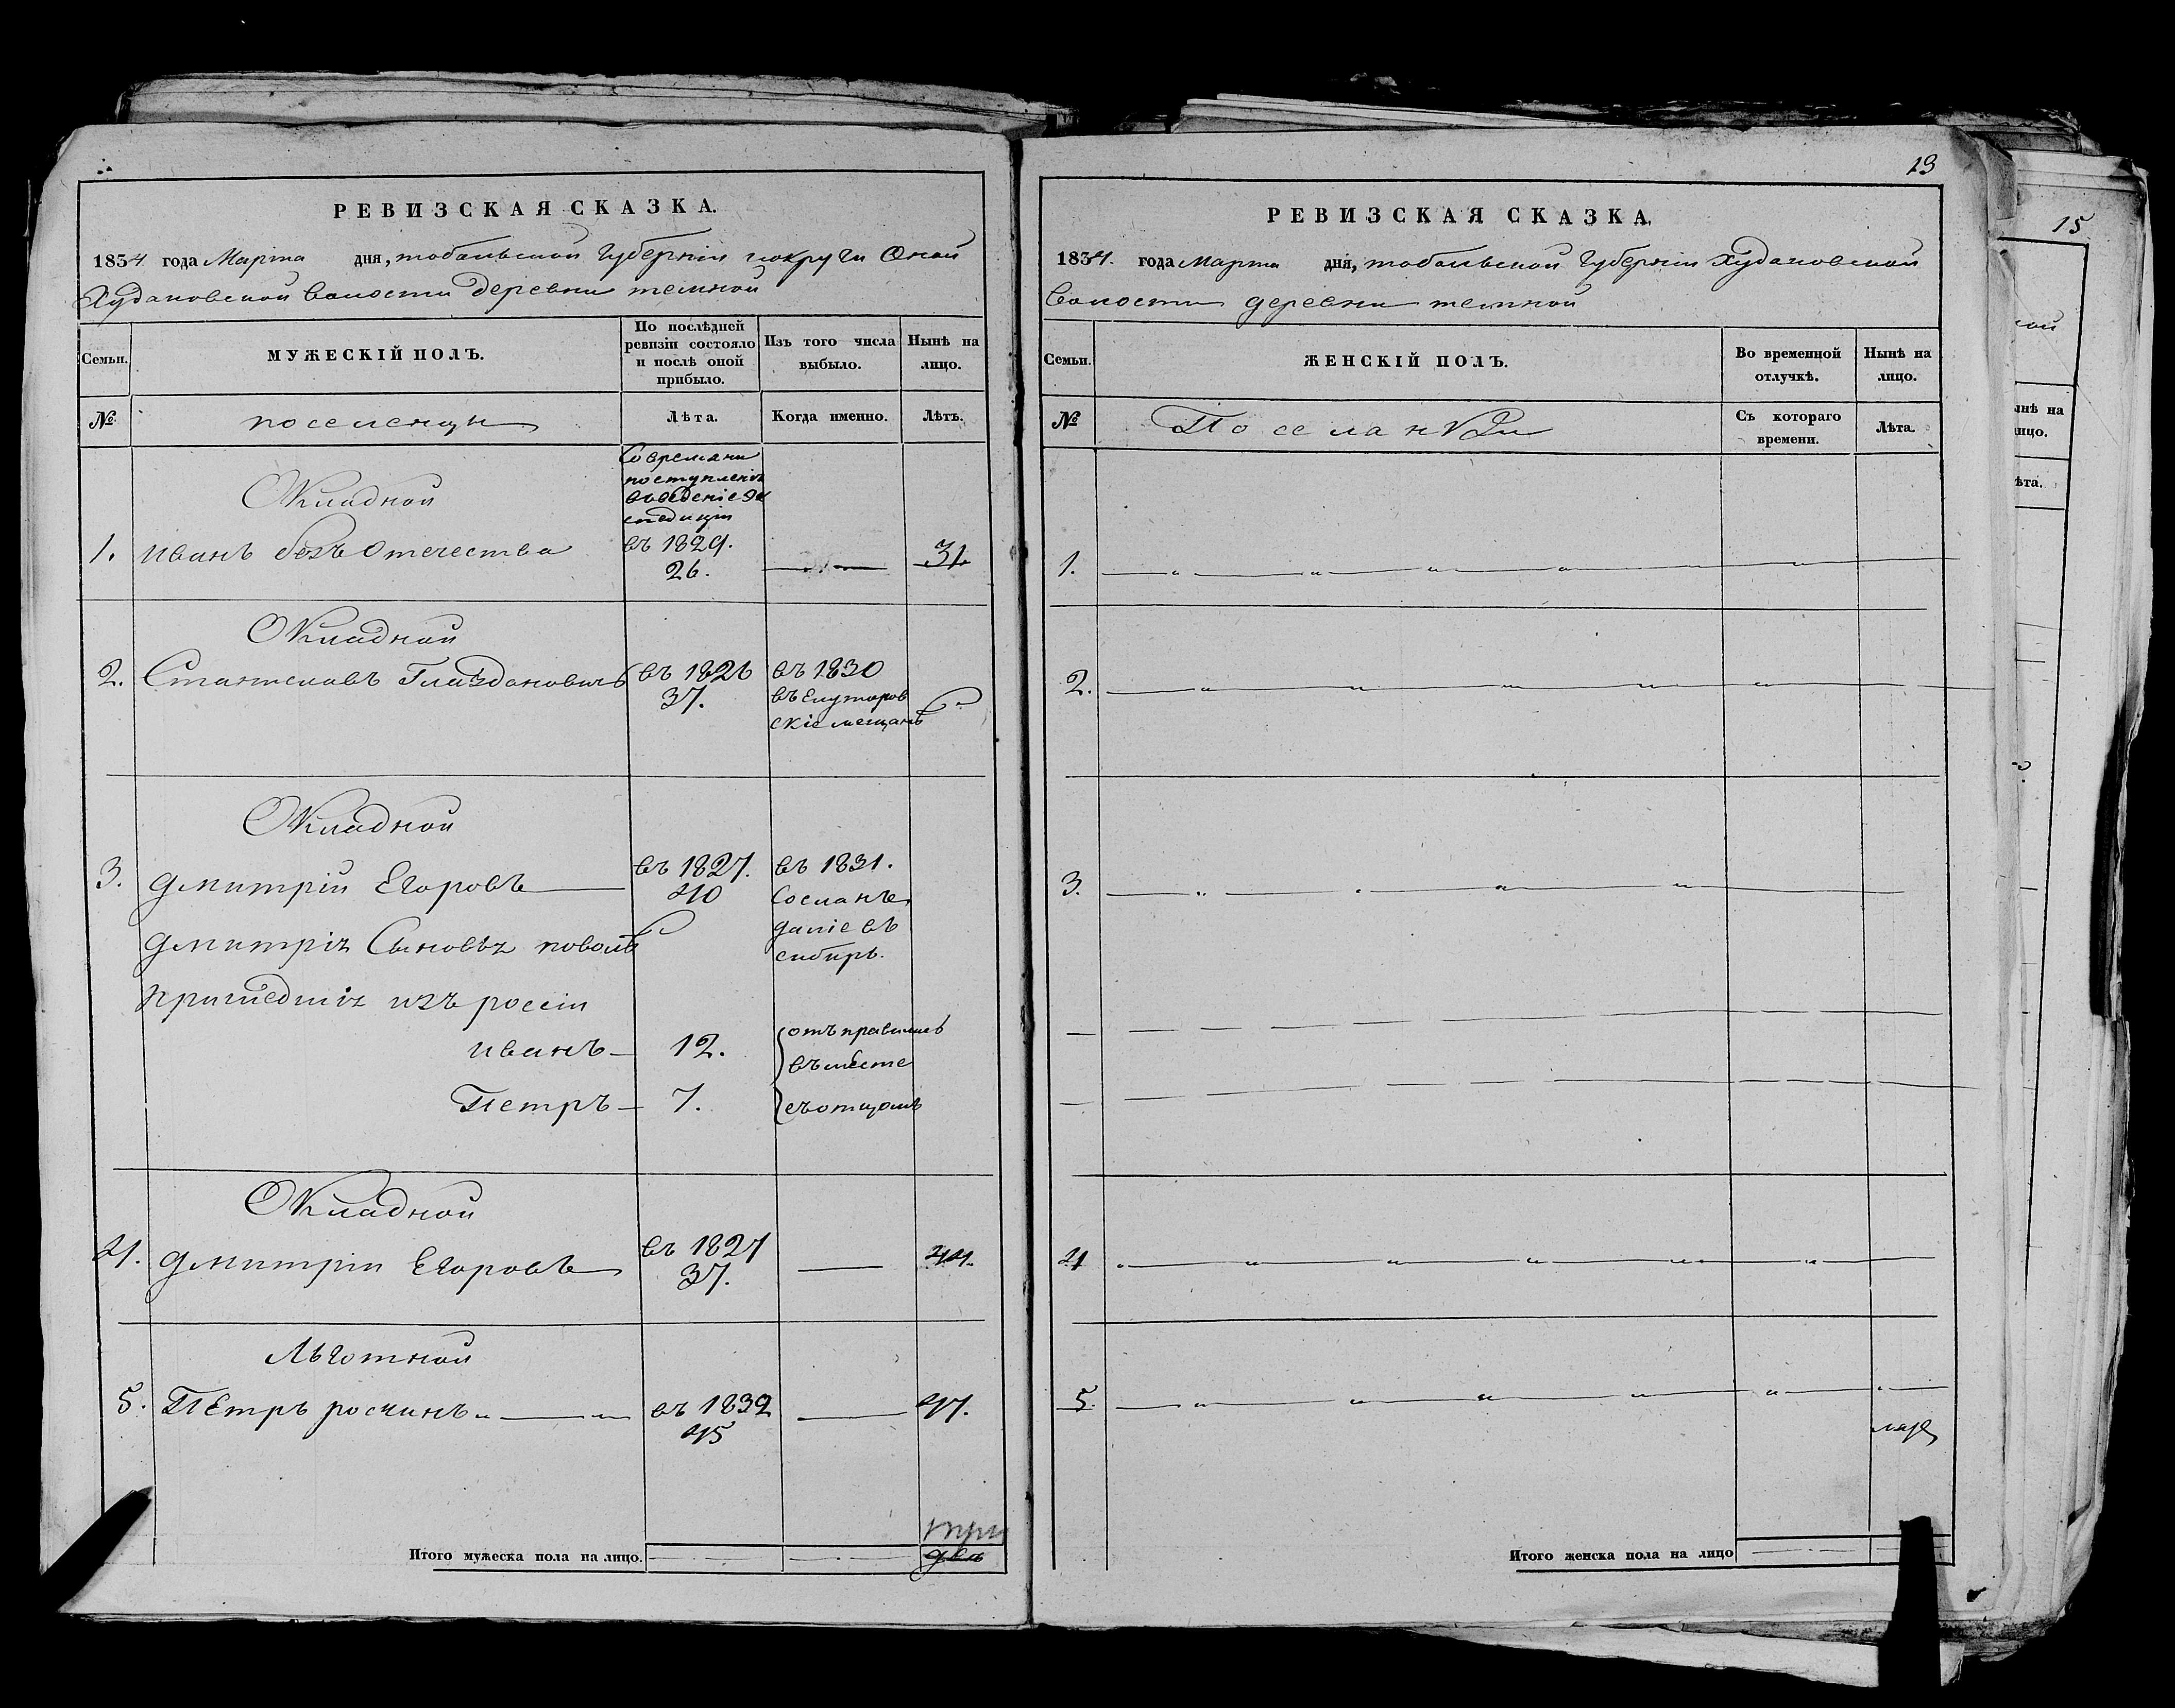 РЕВИЗСКАЯ СКАЗКА.
1834 года Марта дня, тобольской Губерніи иокруги Оной
Худаковской волости деревни темной
Семьи.
МУЖЕСКІЙ ПОЛЪ.
По послѣдней ревизіи состояло и послѣ оной прибыло.
Изъ того числа выбыло.
Нынѣ на лицо.
№
поселенцы
Лѣта.
Когда именно.
Лѣтъ.
Окладной
Современи
поступленія
въведеніе Эк
спедиціи
1. иванъ безъ Отечества въ 1829. 26. 31.
Окладной
2. Станиславъ въ 1826 37. въ 1830
въ Елуторов
скіе мещанѣ
Окладной
3. дмитрій Егоровъ въ 1827. 40 въ 1831.
Сосланъ
даліе въ
сибирь.
дмитрія Сыновья поволѣ
пришедшія изъ россіи
иванъ 12. отъправились
въместе
Петръ 7. съотцомъ
Окладной
4. дмитріи Егоровъ въ 1827 37. 44.
Льготной
5. Петръ роскинъ въ 1832 45 47.
три
Итого мужеска пола на лицо. два
13
РЕВИЗСКАЯ СКАЗКА.
1834. года марта дня, тобольской Губерніи Худаковской
волости деревни темной
Семьи.
ЖЕНСКІЙ ПОЛЪ.
Во временной отлучкѣ.
Нынѣ на лицо.
№
Поселанки
Съ котораго времени.
Лѣта.
1.
2.
3.
4
5.
Итого женска пола на лицо
15